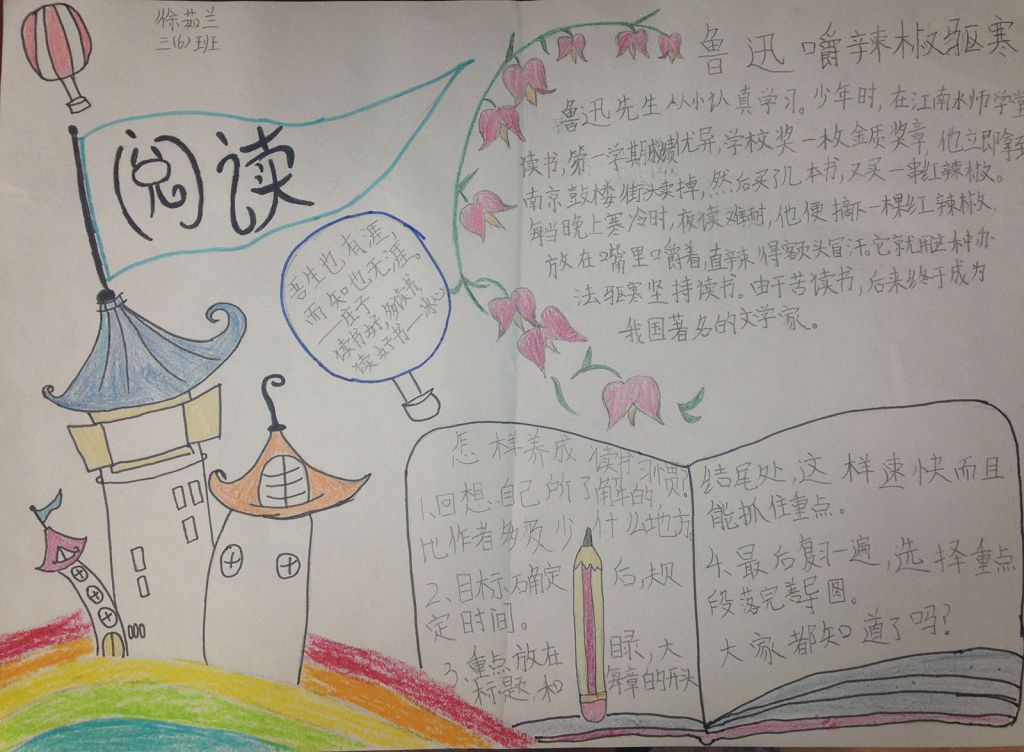 徐茹兰
三(6)班
阅读
吾生也有涯,
而知也无涯。
——庄子
读书好,多读书,
读好书——冰心
鲁迅嚼辣椒驱寒
鲁迅先生从小认真学习。少年时,在江南水师学堂
读书,第一学期成绩优异,学校奖一枚金质奖章,他立即拿到
南京鼓楼街头卖掉,然后买了几本书,又买一串红辣椒。
每当晚上寒冷时,夜读难耐,他便摘下一棵红辣椒,
放在嘴里嚼着,直辣得额头冒汗。它就用这种办
法驱寒坚持读书。由于苦读书,后来终于成为
我国著名的文学家。
怎样养成读书习惯?
1、回想自己所了解的,
比作者多及少什么地方
2、目标确定后,规
定时间。
3、重点放在目录,大
标题,和每章的开头
结尾处,这样速快而且
能抓住重点。
4、最后复习一遍,选择重点
段落完善导图。
大家都知道了吗?